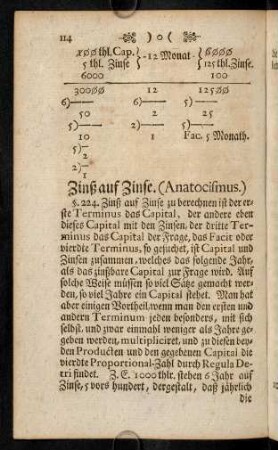 114 )o(
100 thl. Cap. - 12 Monat - 6000
5 thl. Zinse 125 thl. Zinse.
6000 100
30000 12 12500
6) 6) 5)
50 2 25
5) 2) 5)
10 1 Fac. 5 Monath.
5)
2
2)
1
Zinß auf Zinse. (Anatocismus.)
§. 224. Zinß auf Zinse zu berechnen ist der er-
ste Terminus das Capital, der andere eben
dieses Capital mit den Zinsen, der dritte Ter-
minus das Capital der Frage, das Facit oder
vierdte Terminus, so gesuchet, ist Capital und
Zinsen zusammen, welches das folgende Jahr,
als das zinßbare Capital zur Frage wird. Auf
solche Weise müssen so viel Sätze gemacht wer-
den, so viel Jahre ein Capital stehet. Man hat
aber einigen Vortheil, wenn man den ersten und
andern Terminum jeden besonders, mit sich
selbst, und zwar einmahl weniger als Jahre ge-
geben werden, multipliciret, und zu diesen bey-
den Producten und den gegebenen Capital die
vierdte Proportional-Zahl durch Regula De-
tri findet. Z. E. 1000 thlr. stehen 6 Jahr auf
Zinse, 5 vors hundert, dergestalt, daß jährlich
die